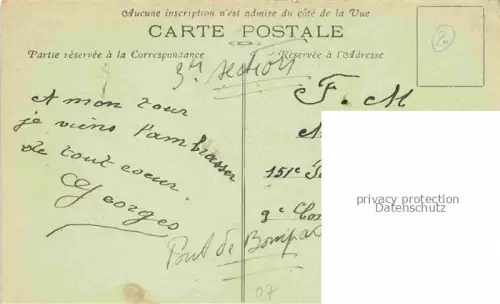 Aucune inscription n'est admise du côté de la Vue
CARTE POSTALE
Partie réservée à la Correspondance
Réservée à l'Adresse
section
F. M
A mon tour
je viens t'ambrasser
de tout coeur.
Georges
151e
9e
Pont de
07
privacy protection
Datenschutz